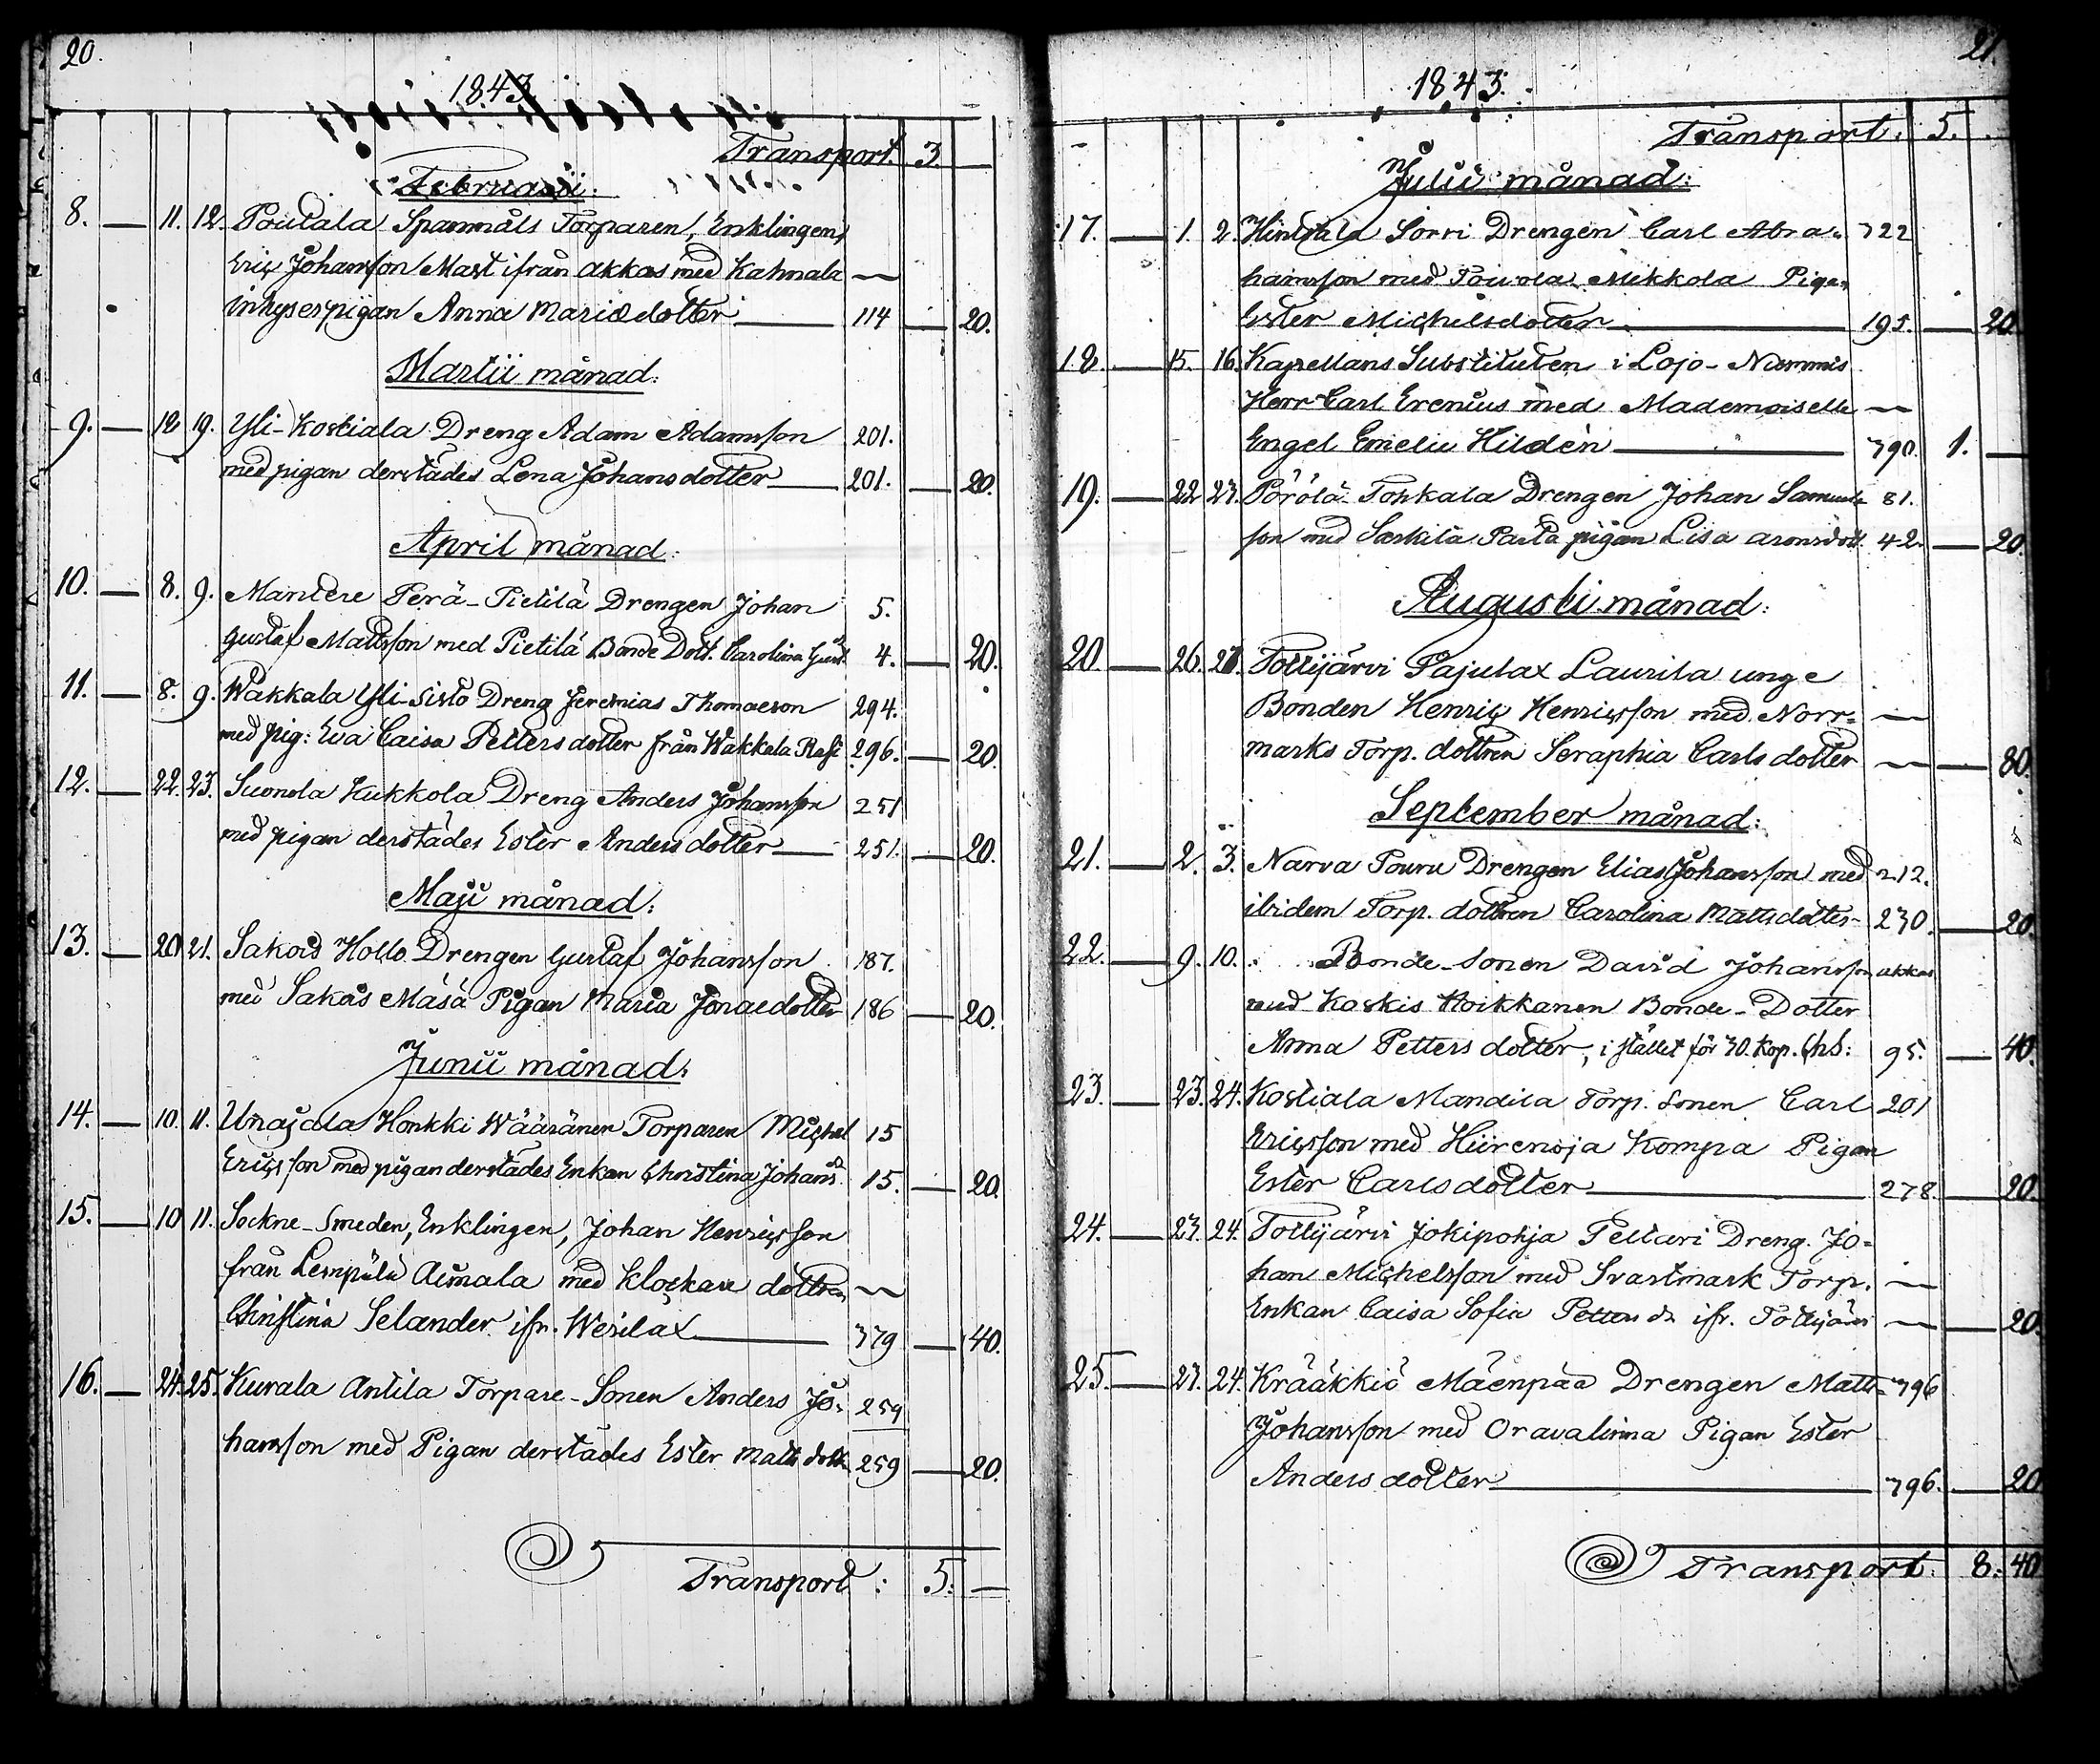 20.
1843
Transport. 3. —
Februarii.
8. — 11. 12. Poutala Spannmåls Torparen, Enklingen,
Eric Johansson Mast ifrån Akkas med Kahnala —
inhysespigan Anna Mariædotter — 114 — 20.
Martii månad:
9. — 12 19. Yli-Kostiala Dreng Adam Adamsson 201.
med pigan derstädes Lena Johansdotter — 201. — 20.
April månad:
10. — 8. 9. Mantere Perä-Pietilä Drengen Johan 5.
Gustaf Mattsson med Pietilä Bonde Dott. Carolina Gust. 4. — 20.
11. — 8. 9. Wakkala Yli-Sisto Dreng Jeremias Thomaeson 294.
med pig: Eva Caisa Pettersdotter från Wakkala Rasi 296. — 20.
12. — 22. 23. Suonola Kukkola Dreng Anders Johansson 251
med pigan derstädes Ester Andersdotter — 251. — 20.
Maji månad:
13. — 20 21. Sakois Hollo Drengen Gustaf Johansson 187.
med Sakois Mäsä Pigan Maria Jonaedotter 186 — 20.
Junii månad:
14. — 10. 11. Unajala Honkki Wääränen Torparen Michel 15
Ericsson med pigan derstädes Enkan Christina Johans d. 15. — 20.
15. — 10 11. Sockne-Smeden, Enklingen, Johan Henricsson
från Lempälä Aimala med Klockare dottren —
Christina Selander ifr. Wesilax — 379 — 40.
16. — 24. 25. Kurala Antila Torpare-Sonen Anders Jo- 259
hansson med Pigan derstädes Ester Matts dott. 259 — 20.
Transport: 5: —
21.
1843.
Transport. 5. —
Julii månad:
17. — 1. 2. Sorri Drengen Carl Abra- 322
hamsson med Touvola Mikkola Pigan
Ester Michelsdotter — 195. — 20.
18. — 15. 16. Kapellans Substituten i Lojo-Nummis
Herr Carl Erenius med Mademoiselle —
Engel Emelie Hildén — 390. 1. —
19. — 22 23. Pörölä Tohkala Drengen Johan Samuels- 81.
son med Särkilä Pärtä pigan Lisa Aronsdott. 42. — 20.
Augusti månad:
20. — 26. 27. Tottijärvi Pajulax Laurila unge
Bonden Henric Henricsson med Norr- —
marks Torp. dottren Seraphia Carls dotter — — 80.
September månad:
21. — 2. 3. Narva Pouru Drengen Elias Johansson med 212.
ibidem Torp. dottren Carolina Mattsdotter 230. — 20.
22. — 9. 10. Bonde-Sonen David Johansson Akkas
med Koskis Hoikkanen Bonde-Dotter
Anna Petters dotter, i stället för 30. Kop. 95. — 40.
23. — 23. 24. Kostiala Mandila Torp. Sonen Carl 201
Ericsson med Hiirenoja Kompa Pigan
Ester Carlsdotter — 278. — 20.
24. — 23. 24. Tottijärvi Jokipohja Pettari Dreng. Jo-
han Michelsson med Svartmark Torp. —
Enkan Caisa Sofia Petters dr ifr. Tottijärvi — — 20.
25. — 23. 24. Krääkkiö Mäenpää Drengen Matts 396
Johansson med Oravalinna Pigan Ester
Anders dotter — 396. — 20
Transport. 8: 40